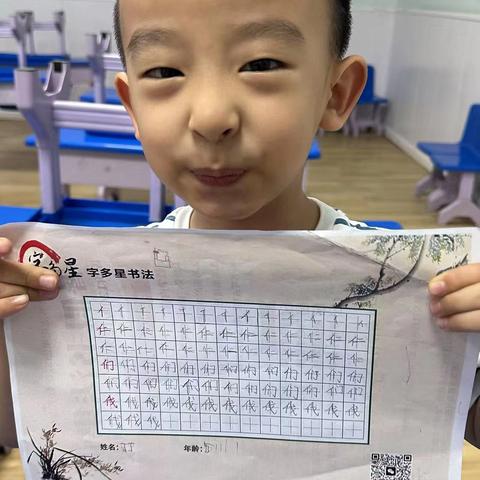 字多星 字多星书法
亻亻亻亻亻亻亻亻亻亻亻亻亻
仁仁仁仁仁仁仁仁仁仁仁仁仁
仁仁仁仁仁仁仁仁仁仁仁仁仁
们们们们们们们们们们们们们
们们们们们们们们们们们们们
姓名： 年龄：